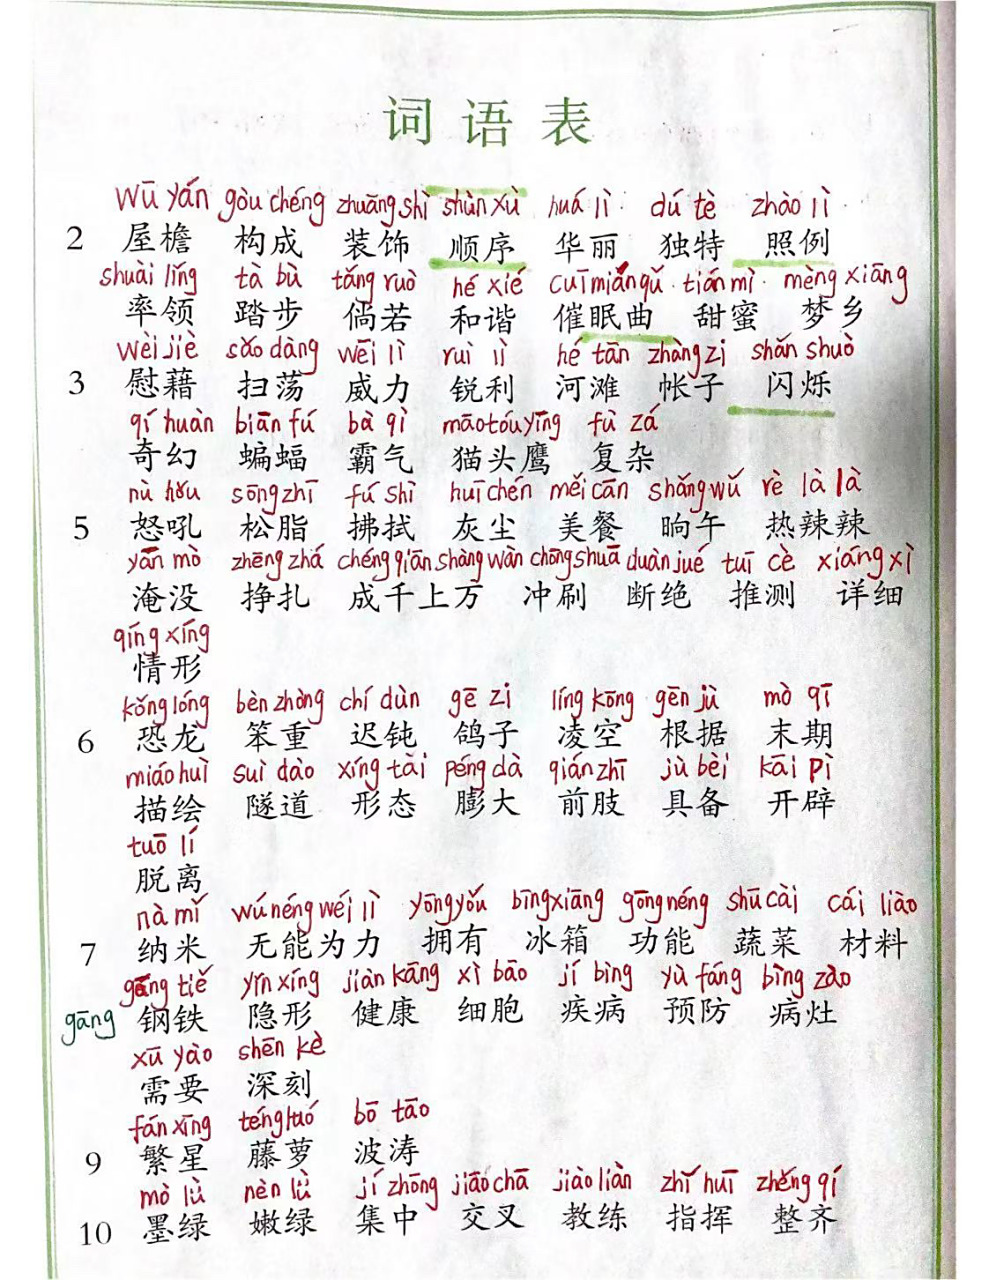 词语表
wū yán gòu chéng zhuāng shì shùn xù huá lì dú tè zhào lì
2 屋檐 构成 装饰 顺序 华丽 独特 照例
shuài lǐng tà bù tǎng ruò hé xié cuī mián qǔ tián mì mèng xiāng
率领 踏步 倘若 和谐 催眠曲 甜蜜 梦乡
wèi jiè sǎo dàng wēi lì ruì lì hé tān zhàng zi shǎn shuò
3 慰藉 扫荡 威力 锐利 河滩 帐子 闪烁
qí huàn biān fú bà qì māo tóu yīng fù zá
奇幻 蝙蝠 霸气 猫头鹰 复杂
nù hǒu sōng zhī fú shì huī chén měi cān shǎng wǔ rè là là
5 怒吼 松脂 拂拭 灰尘 美餐 晌午 热辣辣
yān mò zhēng zhá chéng qiān shàng wàn chōng shuā duàn jué tuī cè xiáng xì
淹没 挣扎 成千上万 冲刷 断绝 推测 详细
qíng xíng
情形
kǒng lóng bèn zhòng chí dùn gē zi líng kōng gēn jù mò qī
6 恐龙 笨重 迟钝 鸽子 凌空 根据 末期
miáo huì suì dào xíng tài péng dà qián zhī jù bèi kāi pì
描绘 隧道 形态 膨大 前肢 具备 开辟
tuō lí
脱离
nà mǐ wú néng wéi lì yōng yǒu bīng xiāng gōng néng shū cài cái liào
7 纳米 无能为力 拥有 冰箱 功能 蔬菜 材料
gāng tiě yǐn xíng jiàn kāng xì bāo jí bìng yù fáng bìng zào
gāng 钢铁 隐形 健康 细胞 疾病 预防 病灶
xū yào shēn kè
需要 深刻
fán xīng téng luó bō tāo
9 繁星 藤萝 波涛
mò lǜ nèn lǜ jí zhōng jiāo chā jiào liàn zhǐ huī zhěng qí
10 墨绿 嫩绿 集中 交叉 教练 指挥 整齐